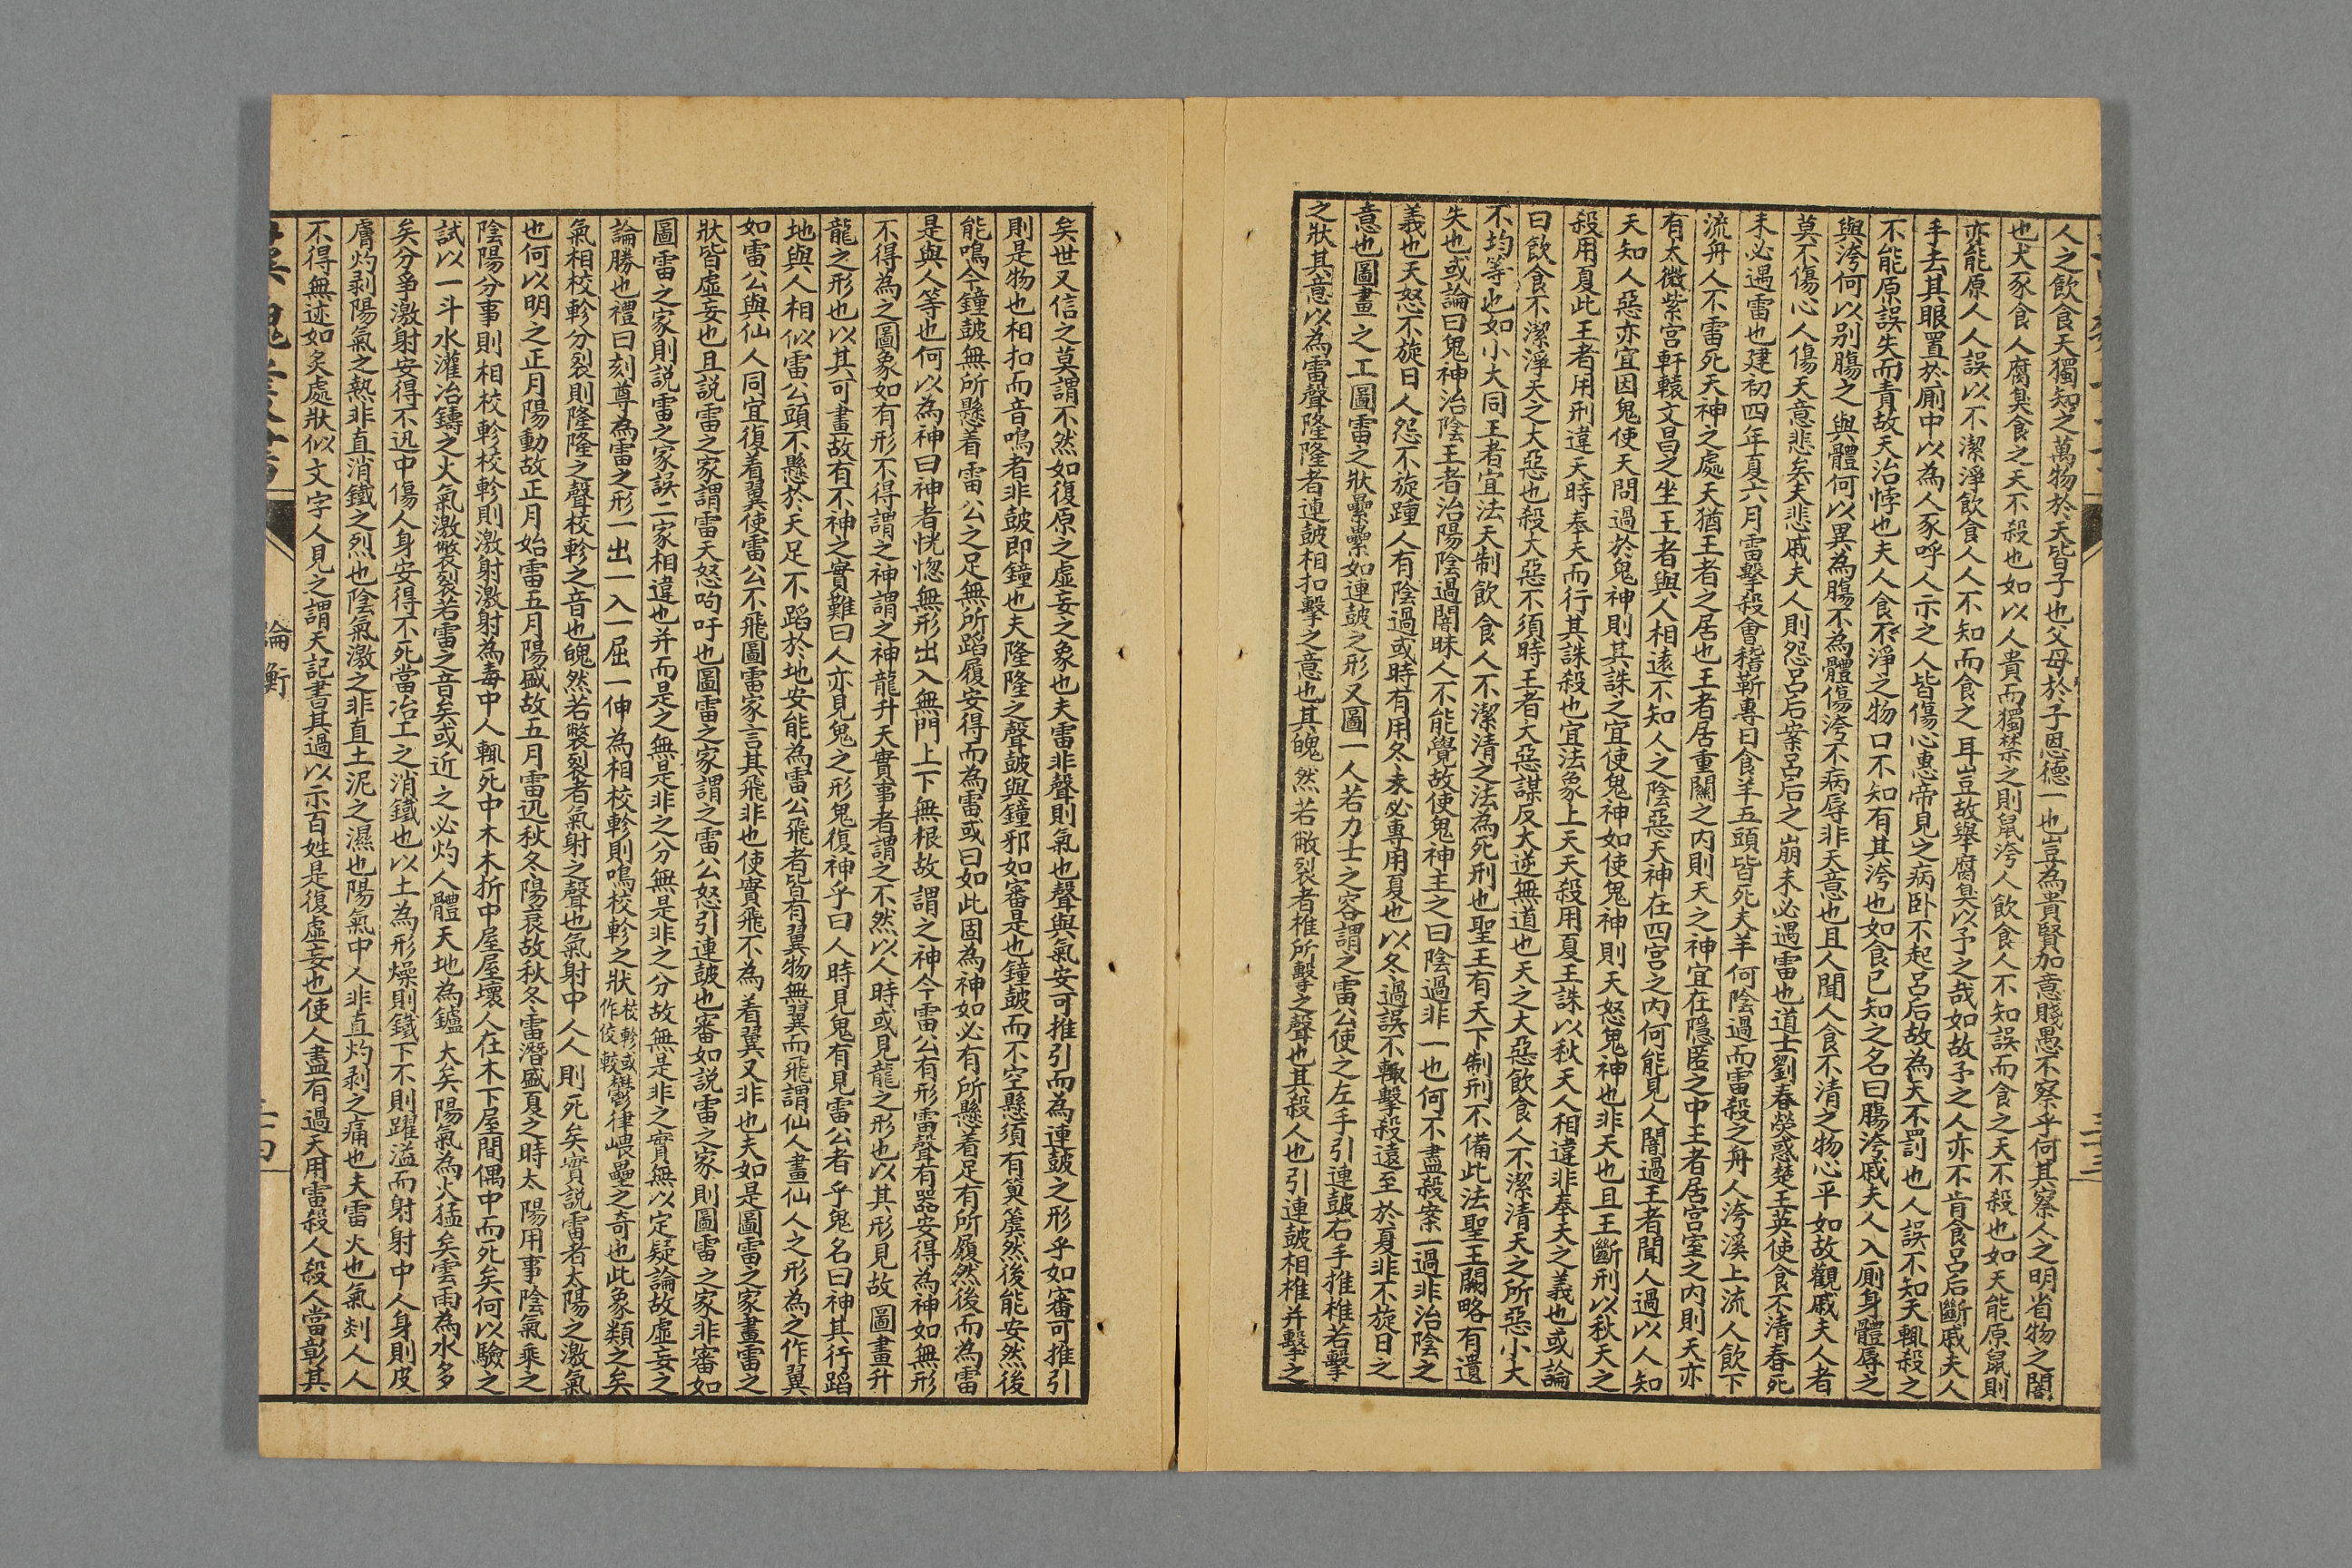 人之飲食天獨知之萬物於天皆子也父母於子恩德一也豈為貴賢加意賤愚不察乎何其察人之明省物之闇
也犬豕食人腐臭食之天不殺也如以人貴而獨禁之則鼠洿人飲食人不知誤而食之天不殺也如天能原鼠則
亦能原人人誤以不潔淨飲食人人不知而食之耳豈故舉腐臭以予之哉如故予之人亦不肯食呂后斷戚夫人
手去其眼置於廁中以為人豕呼人示之人皆傷心惠帝見之病卧不起呂后故為天不罰也人誤不知天輒殺之
不能原誤失而責故天治悖也夫人食不淨之物口不知有其洿也如食已知之名曰腸洿戚夫人入廁身體辱之
與洿何以别腸之與體何以異為腸不為體傷洿不病辱非天意也且人聞人食不清之物心平如故觀戚夫人者
莫不傷心人傷天意悲矣夫悲戚夫人則怨呂后案呂后之崩未必遇雷也道士劉春熒惑楚王英使食不清春死
未必遇雷也建初四年夏六月雷擊殺會稽靳專日食羊五頭皆死夫羊何陰過而雷殺之舟人洿溪上流人飲下
流舟人不雷死天神之處天猶王者之居也王者居重關之内則天之神宜在隱匿之中王者居宫室之内則天亦
有太微紫宫軒轅文昌之坐王者與人相遠不知人之陰惡天神在四宫之内何能見人闇過王者聞人過以人知
天知人惡亦宜因鬼使天問過於鬼神則其誅之宜使鬼神如使鬼神則天怒鬼神也非天也且王斷刑以秋天之
殺用夏此王者用刑違天時奉天而行其誅殺也宜法象上天天殺用夏王誅以秋天人相違非奉天之義也或論
曰飲食不潔淨天之大惡也殺大惡不須時王者大惡謀反大逆無道也天之大惡飲食人不潔清天之所惡小大
不均等也如小大同王者宜法天制飲食人不潔清之法為死刑也聖王有天下制刑不備此法聖王闕略有遺
失也或論曰鬼神治陰王者治陽陰過闇昧人不能覺故使鬼神主之曰陰過非一也何不盡殺案一過非治陰之
義也天怒不旋日人怨不旋踵人有陰過或時有用冬未必專用夏也以冬過誤不輙擊殺遠至於夏非不旋日之
意也圖畫之工圖雷之狀纍纍如連皷之形又圖一人若力士之容謂之雷公使之左手引連皷右手推椎若擊
之狀其意以為雷聲隆隆者連皷相扣擊之意也其魄然若敝裂者椎所擊之聲也其殺人也引連皷相椎并擊之
矣世又信之莫謂不然如復原之虛妄之象也夫雷非聲則氣也聲與氣安可推引而為連皷之形乎如審可推引
則是物也相扣而音鳴者非皷即鐘也夫隆隆之聲皷與鐘邪如審是也鐘皷而不空懸須有筍簴然後能安然後
能鳴今鐘皷無所懸着雷公之足無所蹈履安得而為雷或曰如此固為神如必有所懸着足有所履然後而為雷
是與人等也何以為神曰神者恍惚無形出入無門上下無根故謂之神今雷公有形雷聲有器安得為神如無形
不得為之圖象如有形不得謂之神謂之神龍升天實事者謂之不然以人時或見龍之形也以其形見故圖畫升
龍之形也以其可畫故有不神之實難曰人亦見鬼之形鬼復神乎曰人時見鬼有見雷公者乎鬼名曰神其行蹈
地與人相似雷公頭不懸於天足不蹈於地安能為雷公飛者皆有翼物無翼而飛謂仙人畫仙人之形為之作翼
如雷公與仙人同宜復着翼使雷公不飛圖雷家言其飛非也使實飛不為着翼又非也夫如是圖雷之家畫雷之
狀皆虛妄也且説雷之家謂雷天怒呴吁也圖雷之家謂之雷公怒引連皷也審如説雷之家則圖雷之家非審如
圖雷之家則説雷之家誤二家相違也并而是之無是非之分無是非之分故無是非之實無以定疑論故虛妄之
論勝也禮曰刻尊為雷之形一出一入一屈一伸為相校軫則鳴校軫之狀校軫或作佼較鬱律㟪壘之奇也此象類之矣
氣相校軫分裂則隆隆之聲校軫之音也魄然若弊裂者氣射之聲也氣射中人人則死矣實説雷者太陽之激氣
也何以明之正月陽動故正月始雷五月陽盛故五月雷迅秋冬陽衰故秋冬雷潛盛夏之時太陽用事陰氣乘之
陰陽分事則相校軫校軫則激射激射為毒中人輒死中木木折中屋屋壞人在木下屋間偶中而死矣何以驗之
試以一斗水灌冶鑄之火氣激㡀裂若雷之音矣或近之必灼人體天地為鑪大矣陽氣為火猛矣雲雨為水多
矣分爭激射安得不迅中傷人身安得不死當冶工之消鐵也以土為形燥則鐵下不則躍溢而射射中人身則皮
膚灼剥陽氣之熱非直消鐵之烈也陰氣激之非直土泥之濕也陽氣中人非直灼剥之痛也夫雷火也氣剡人人
不得無迹如炙處狀似文字人見之謂天記書其過以示百姓是復虛妄也使人盡有過天用雷殺人殺人當彰其
論衡